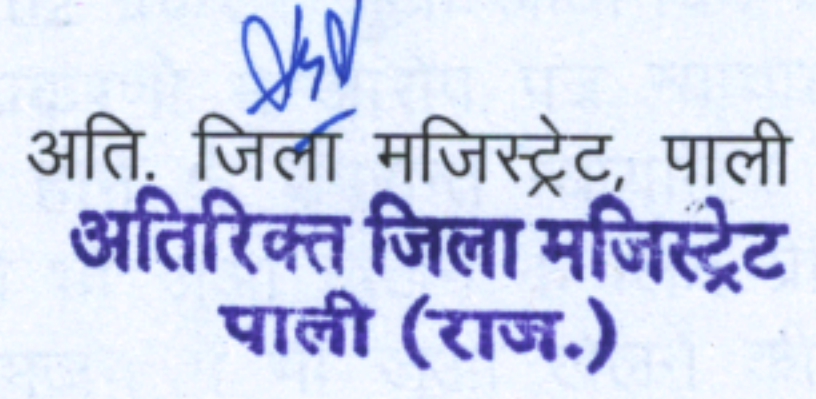 अति. जिला मजिस्ट्रेट, पाली
अतिरिक्त जिला मजिस्ट्रेट
पाली (राज.)